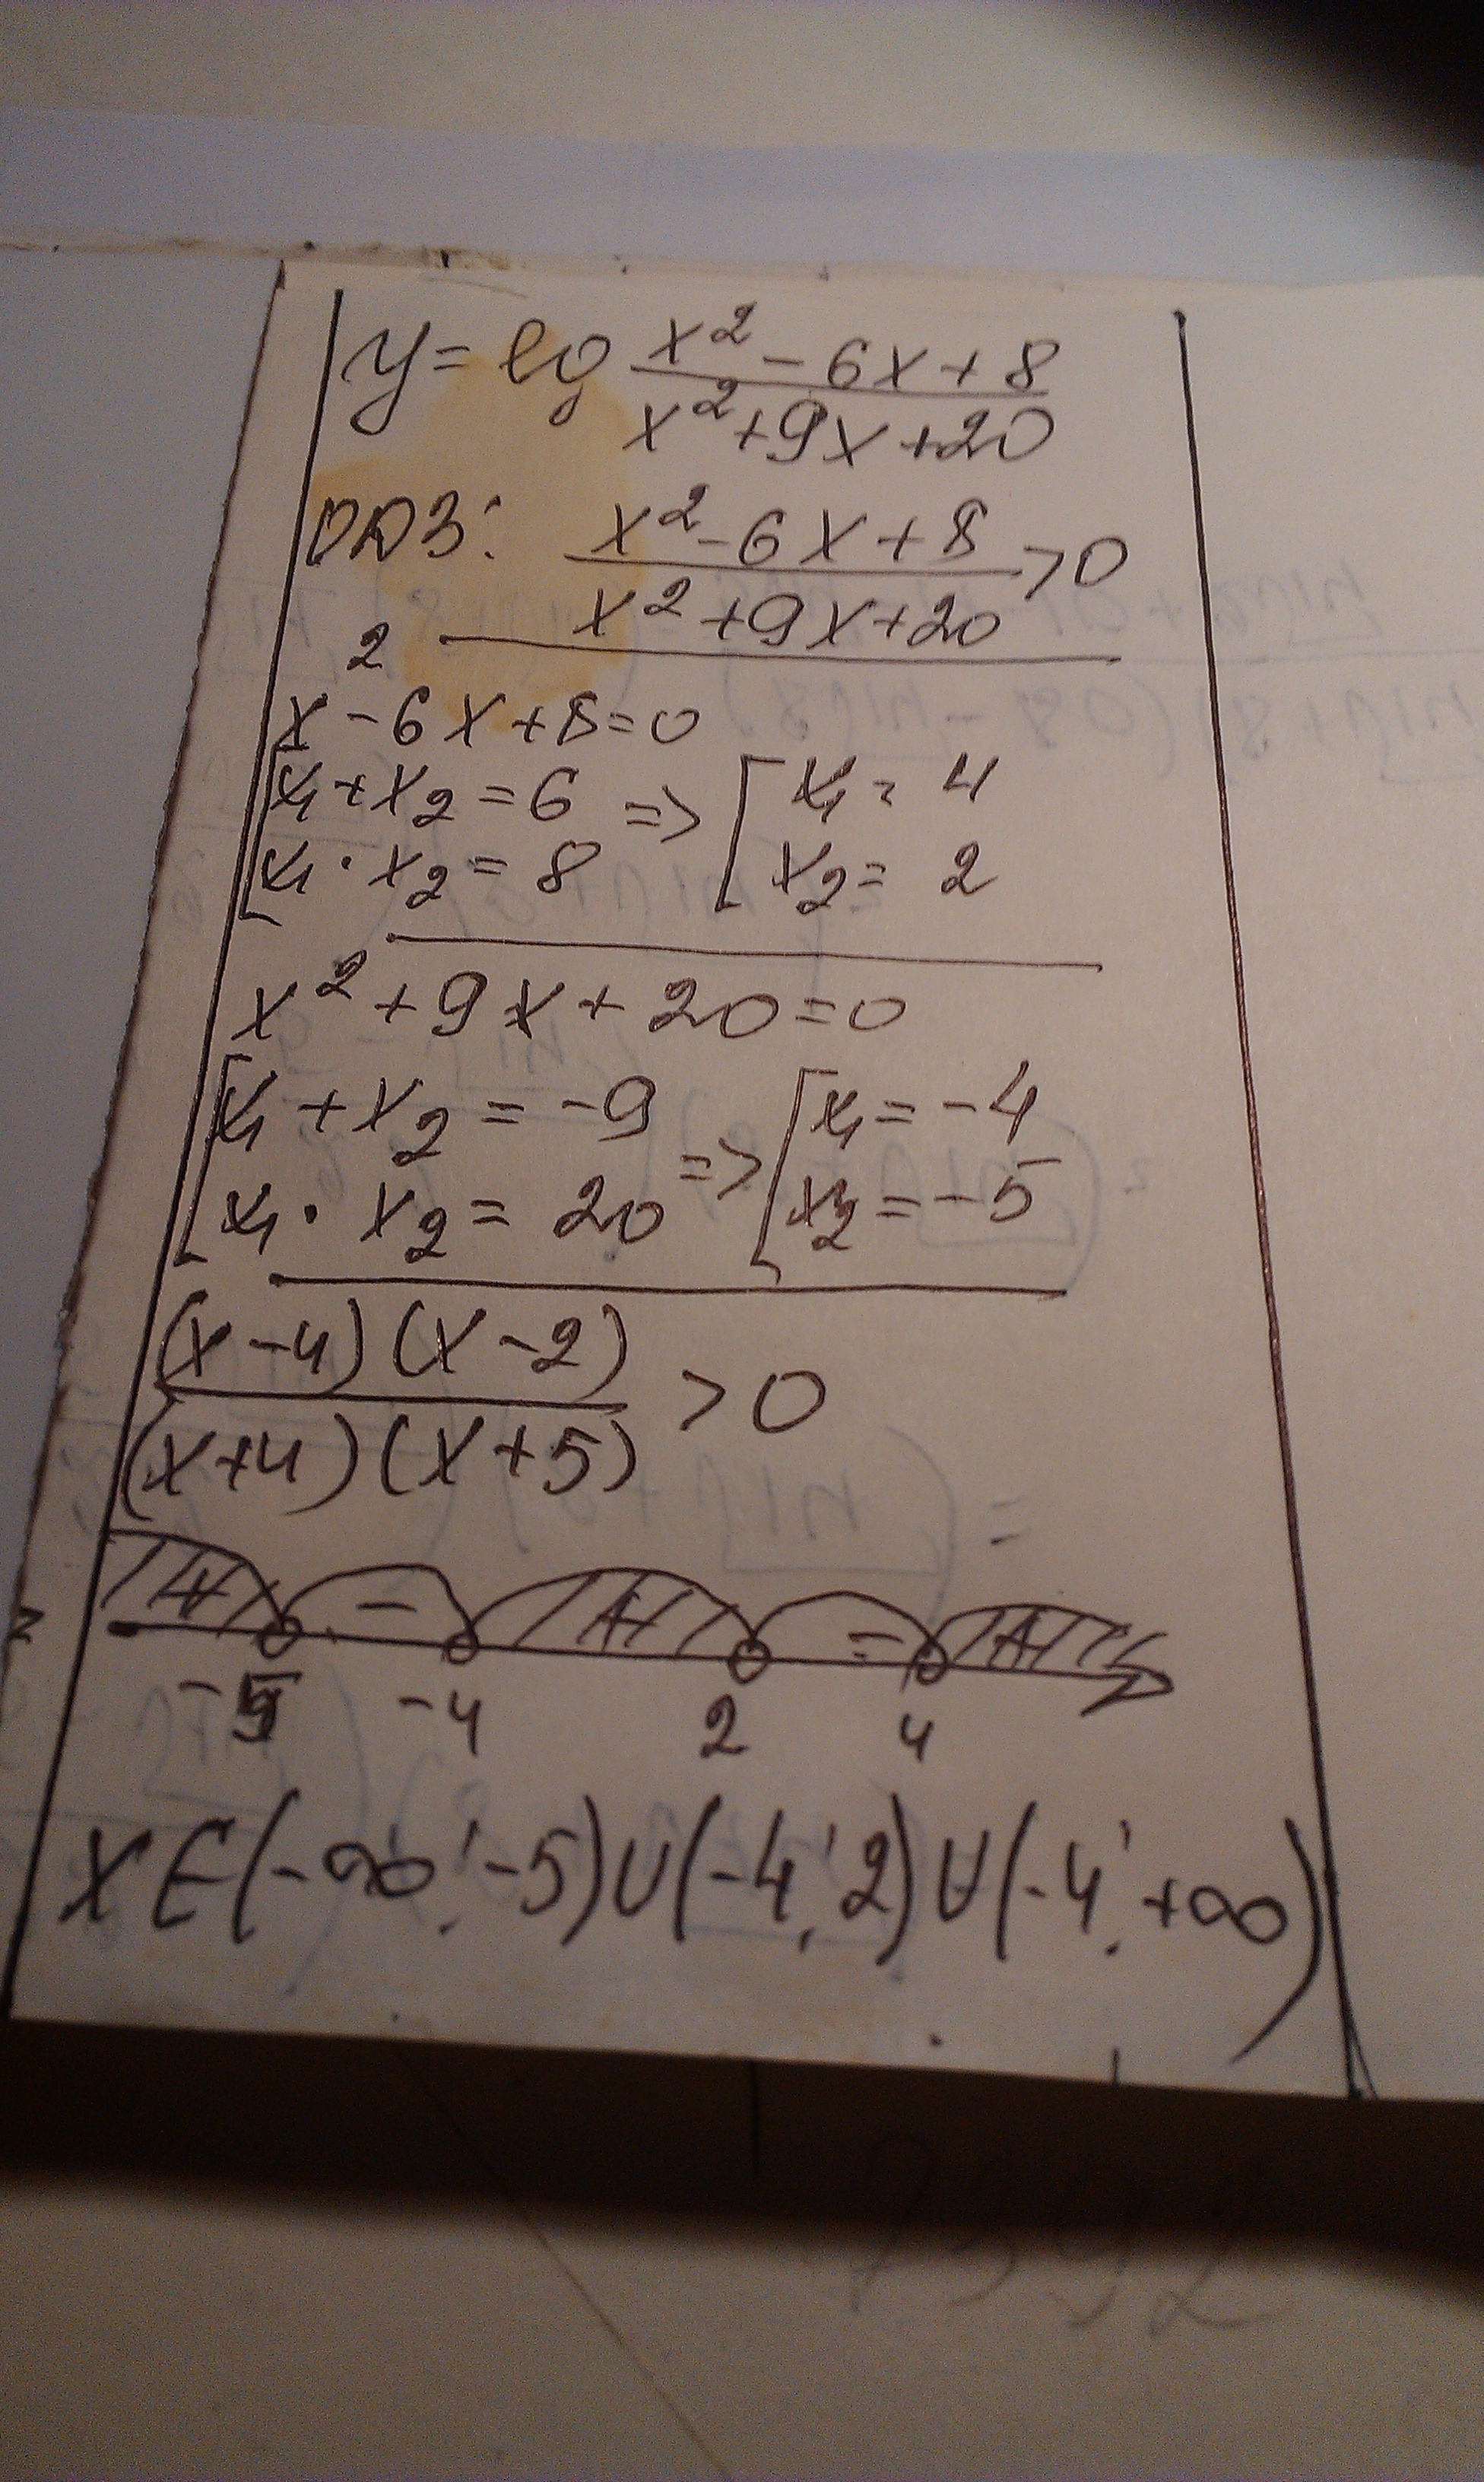 y = lg (x² - 6x + 8)/(x² + 9x + 20)
ОДЗ: (x² - 6x + 8)/(x² + 9x + 20) > 0
x² - 6x + 8 = 0
[x₁ + x₂ = 6 => [x₁ = 4
[x₁ · x₂ = 8 [x₂ = 2
x² + 9x + 20 = 0
[x₁ + x₂ = -9 => [x₁ = -4
[x₁ · x₂ = 20 [x₂ = -5
((x - 4)(x - 2))/((x + 4)(x + 5)) > 0
+ - + - +
-5 -4 2 4
x ∈ (-∞; -5) ∪ (-4; 2) ∪ (-4; +∞)